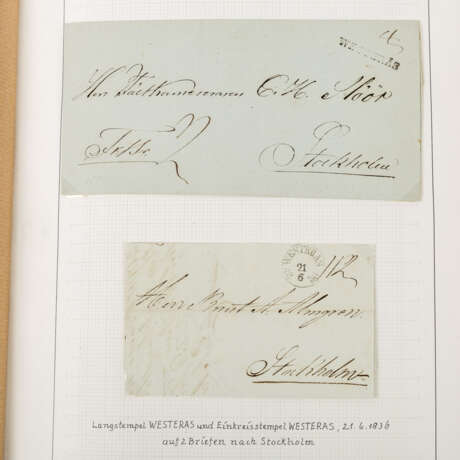 WESTERAS
Herr C. H. Möör
Stockholm
WESTERAS
21
6
Herr A. Almgren
Stockholm
Langstempel WESTERAS und Einkreisstempel WESTERAS, 21.6.1836
auf 2 Briefen nach Stockholm